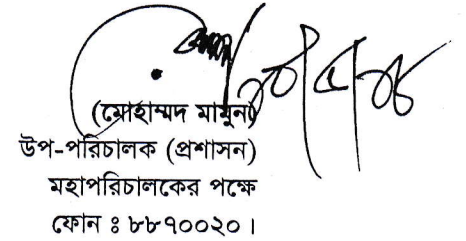 (মোহাম্মদ মামুন)
উপ-পরিচালক (প্রশাসন)
মহাপরিচালকের পক্ষে
ফোন ঃ ৮৮৭০০২০।